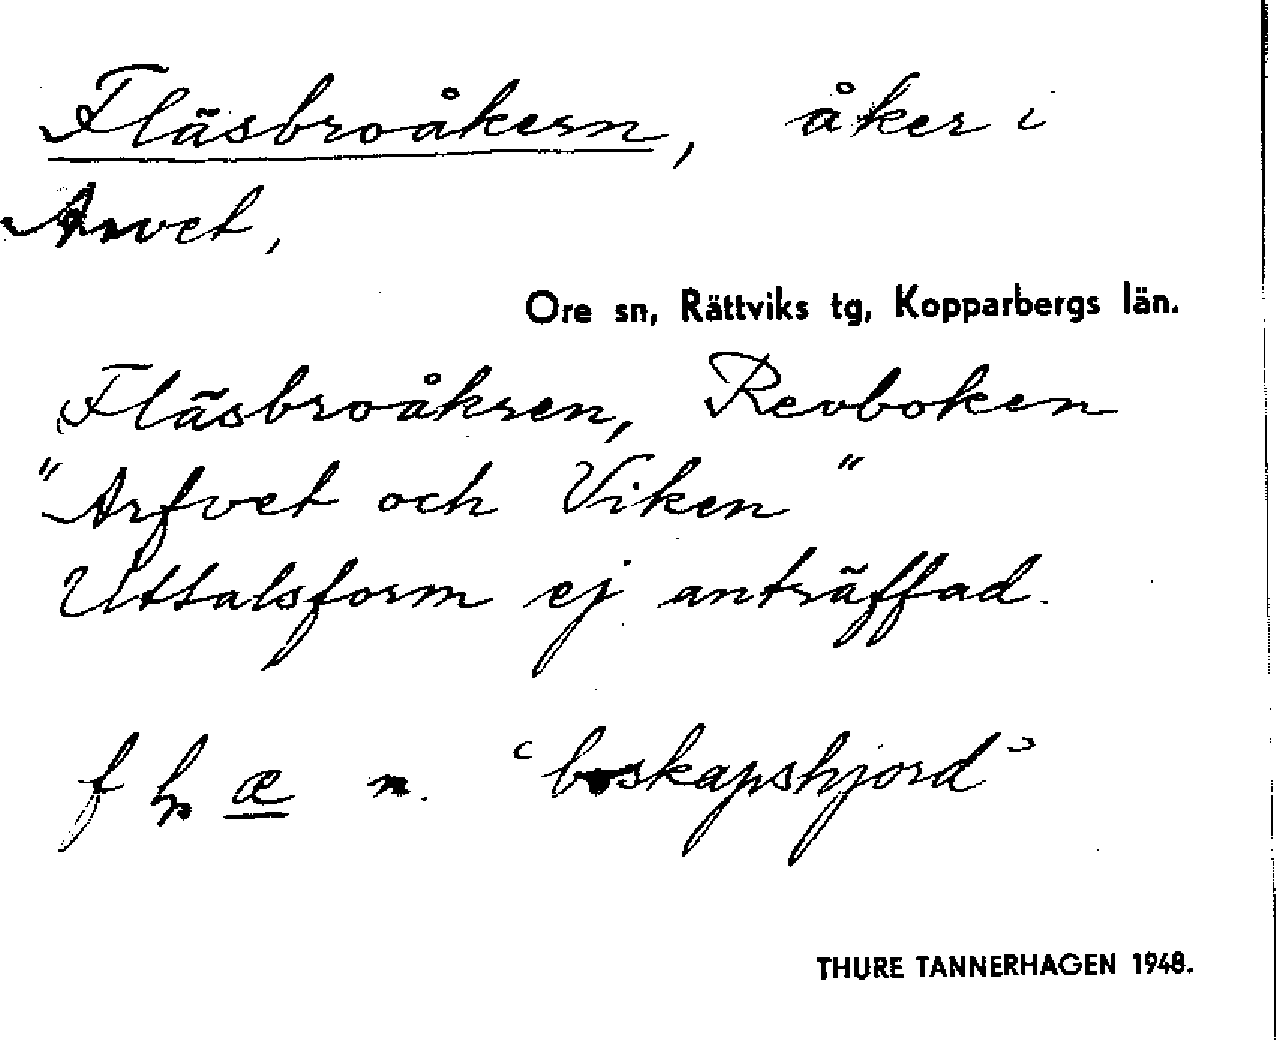 Fläsbroåkern, åker i
Arvet,
Ore sn, Rättviks tg, Kopparbergs län.
Fläsbroåkren, Revboken
"Arfvet och Viken"
Uttalsform ej anträffad.
n. ‘boskapshjord’
THURE TANNERHAGEN 1948.